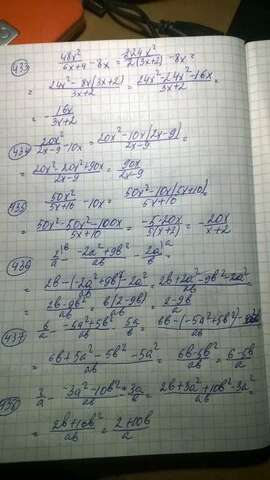 433 48x²/6x+4 - 8x = 24x²/2(3x+2) - 8x =
= 24x² - 8x(3x+2)/3x+2 = 24x² - 24x² - 16x/3x+2 =
= - 16x/3x+2
20x²/2x-9 - 10x = 20x² - 10x(2x-9)/2x-9 =
= 20x² - 20x² + 90x/2x-9 = 90x/2x-9
50x²/5x+10 - 10x = 50x² - 10x(5x+10)/5x+10 =
= 50x² - 50x² - 100x/5x+10 = -5·20x/5(x+2) = - 20x/x+2
436 2/a - -2a²+9b²/ab - 2a/b =
= 2b-(-2a²+9b²)-2a²/ab = 2b+2a²-9b²-2a²/ab =
= 2b-9b²/ab = b(2-9b)/ab = 2-9b/a
437 6/a - -5a²+5b²/ab - 5a/b = 6b-(-5a²+5b²)-5a²/ab =
= 6b+5a²-5b²-5a²/ab = 6b-5b²/ab = 6-5b/a
2/a - -3a²-10b²/ab - 3a/b = 2b+3a²+10b²-3a²/ab =
= 2b+10b²/ab = 2+10b/a